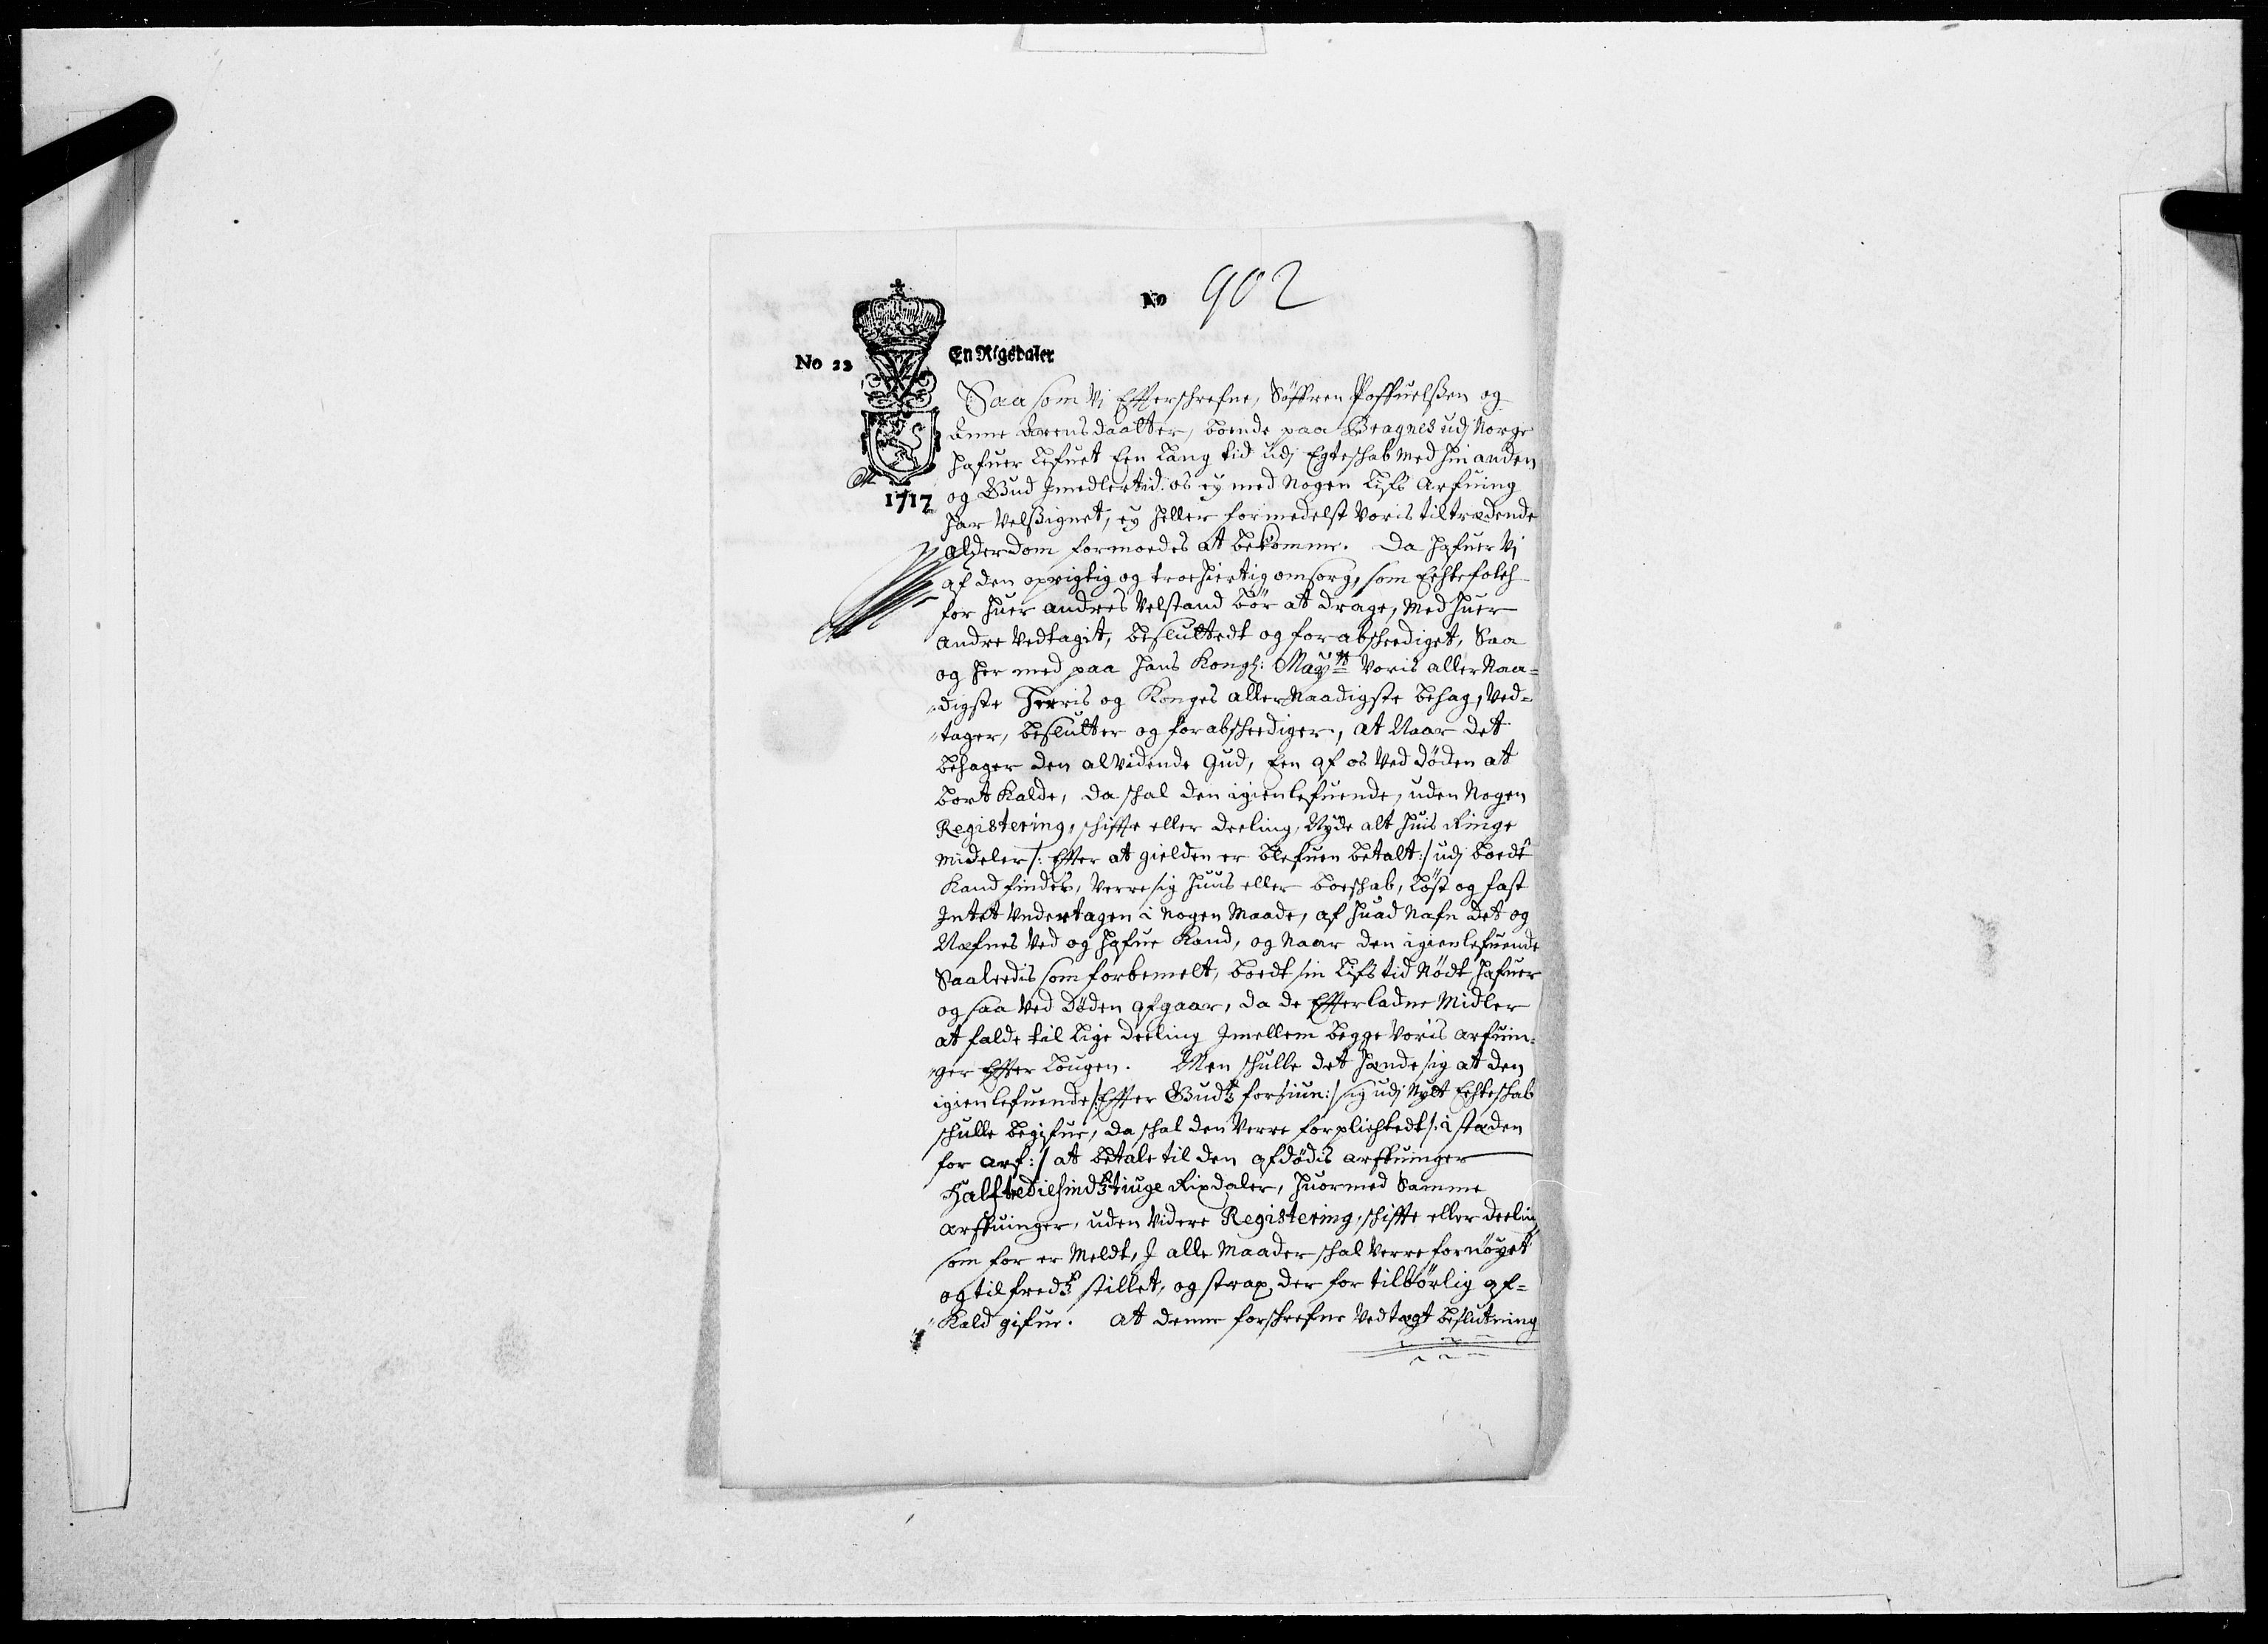 No 902
No 22
En Rigsdaler
1717
Saa som Vi Effterschrefne, Söffren Poffuelsßen og
Anne Larensdaatter, boende paa Bragnes udj Norge
hafuer Lefuet Een Lang tid udj Egteschab med hin anden
og Gud Imedlertid os ey med Nogen Lifs Arfuing
har Velßignet, ey heller formedelst Voris tiltrædende
alderdom formoedes at bekomme. Da hafuer Vi
af den oprigtig og troehiertig omsorg, som Echtefolch
for huer andres Velstand bör at drage, Med huer
andre Vedtagit, besluttedt og forabscheediget, Saa
og her med paa Hans Kongl: Mayᵗᵗ Voris aller Naa=
digste Herris og Konges aller Naadigste behag, Ved=
tager, beslutter og forabscheediger, at Naar det
behager den alvidende Gud, Een af os Ved döden at
bort Kalde, da schal den igienlefuende, uden Nogen
Registering, schiffte eller deeling, Nyde alt huis Ringe
Mideler /: Effter at gielden er blefuen betalt :/ udj boedt
Kand findes, Verre sig huus eller boeschab, löst og fast
Intet Undertagen i Nogen Maade, af huad Nafn det og
Næfnes Ved og hafue Kand, og Naar den igienlefuende
Saaleedis som forbemelt, boedt sin Lifs tid Nödt hafuer
og saa Ved Döden afgaar, da de Effterladne Midler
at falde til Lige deeling Imellem begge Voris arfuin=
ger Effter Lougen. Men schulle det hænde sig at den
igienlefuende /: Effter Guds forsiun :/ sig udj Nytt Echteschab
schulle begifue, da schal den Verre forplichtedt /: i stæden
for arf :/ at betale til den afdödis arffuinger
Halftrediesindstiuge Rixdaler, huormed Samme
arffuinger, uden Videre Registering, schiffte eller deeling
som for er Meldt, I alle Maader schal Verre fornöyet
og tilfreds stillet, og strax der for tilbörlig af=
Kald gifue. At denne forschrefne Vedtægt beslutning